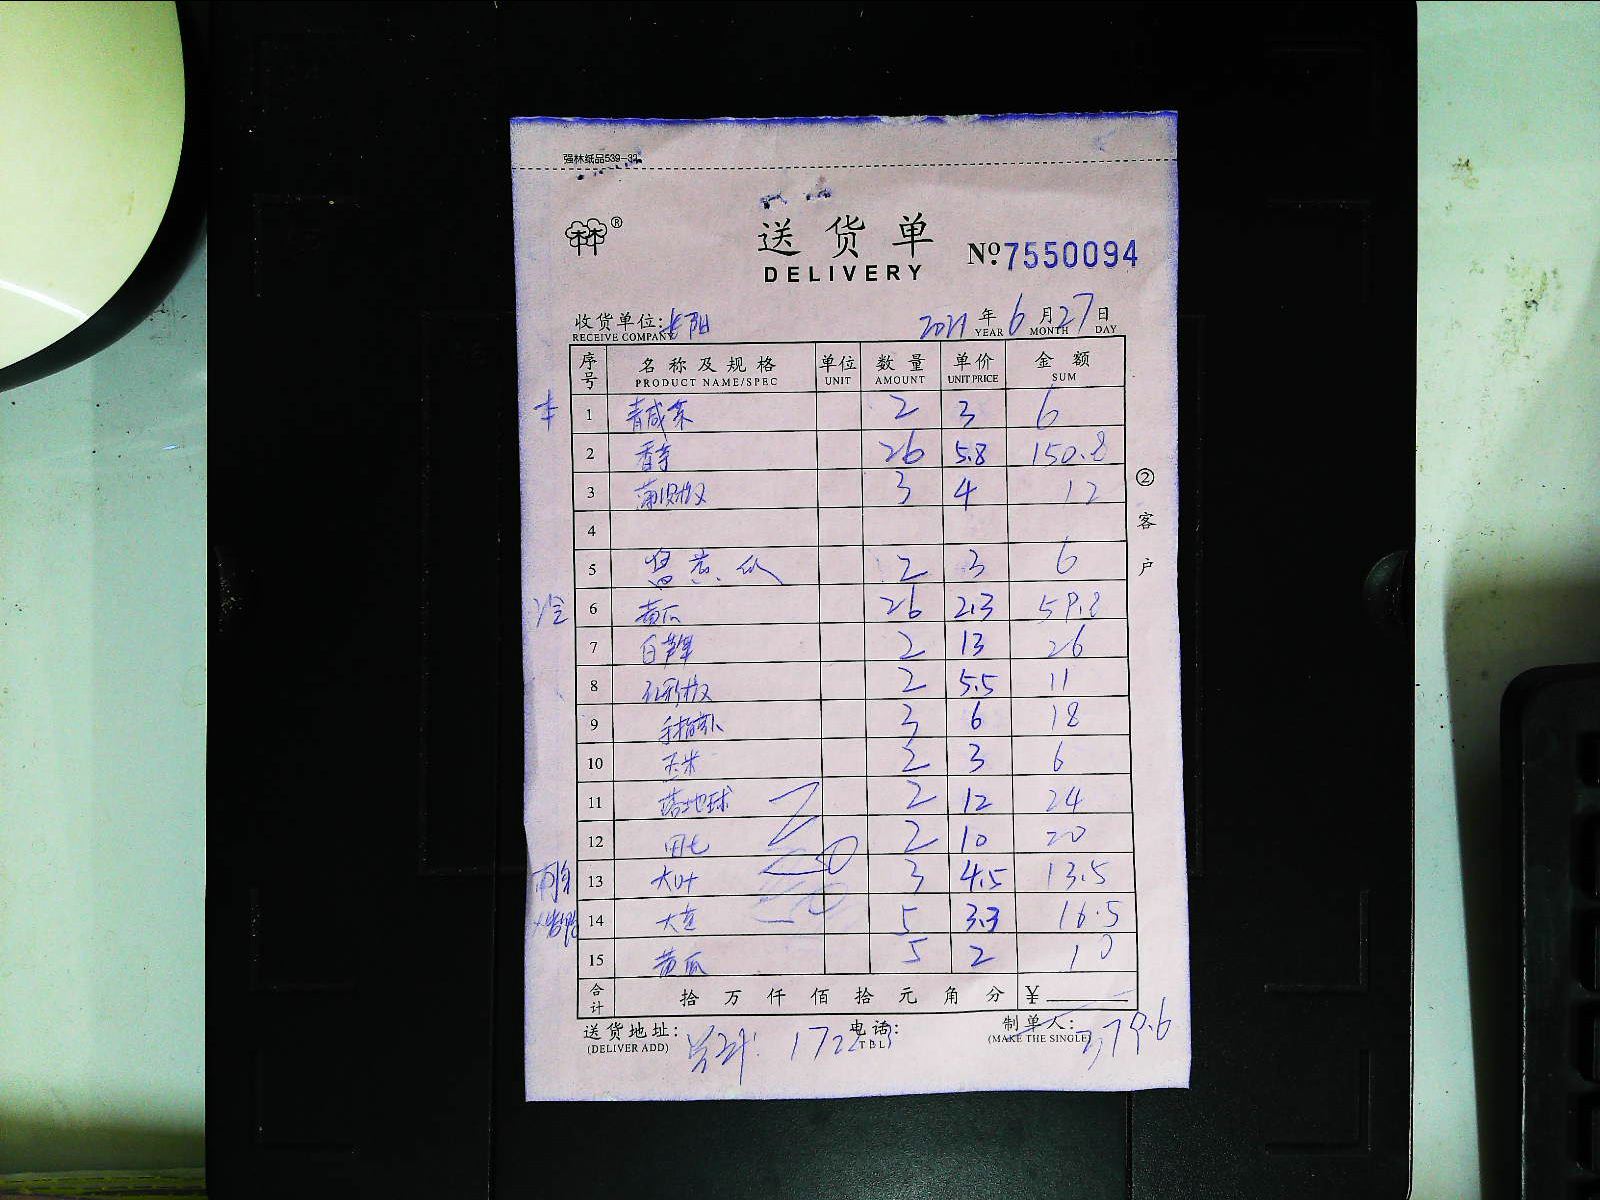 强林纸品539-32
林®
送货单
DELIVERY
№ 7550094
收货单位: 岳阳 2021年6月27日
RECEIVE COMPANY YEAR MONTH DAY
序号 名称及规格 单位 数量 单价 金额
PRODUCT NAME/SPEC UNIT AMOUNT UNIT PRICE SUM
1 2 3 6
2 香 26 5.8 150.8
3 3 4 12
4
5 黄瓜 2 3 6
6 黄瓜 26 2.3 59.8
7 白 2 13 26
8 2 5.5 11
9 3 6 18
10 玉米 2 3 6
11 地球 2 12 24
12 田七 2 10 20
13 大叶 3 4.5 13.5
14 大 5 3.3 16.5
15 黄瓜 5 2 10
合计 拾万仟佰拾元角分 ¥
②客户
送货地址: 电话: 制单人:
(DELIVER ADD) TEL (MAKE THE SINGLE)
379.6